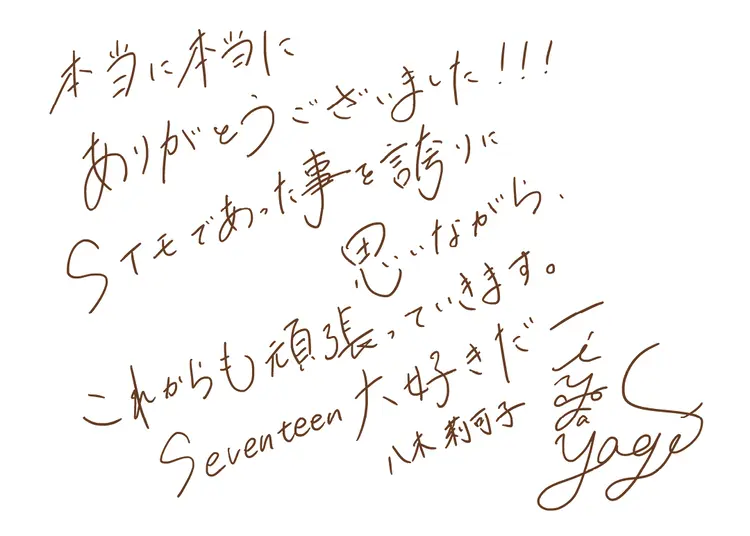 本当に本当に
ありがとうございました!!!
Sイモであった事を誇りに
思いながら、
これからも頑張っていきます。
Seventeen大好きだー
八木莉可子
yagi